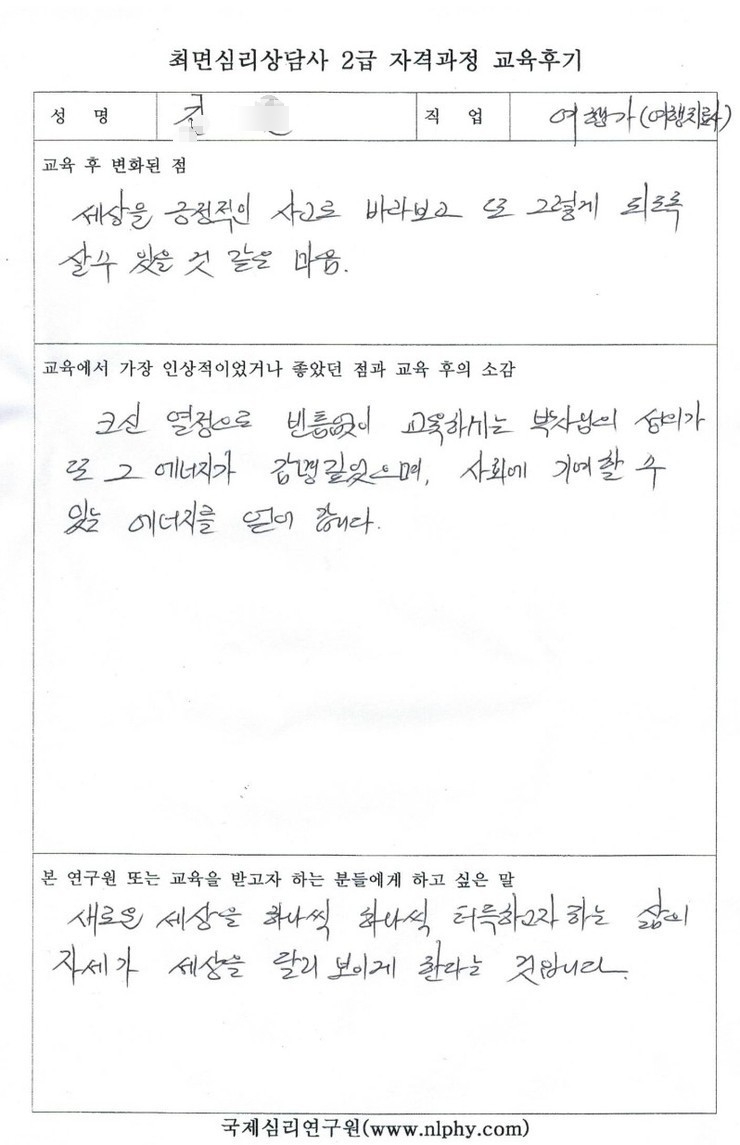 최면심리상담사 2급 자격과정 교육후기
성 명 직 업 여행가(여행치료사)
교육 후 변화된 점
세상을 긍정적인 사고로 바라보고 또 그렇게 되도록
살수 있을 것 같은 마음.
교육에서 가장 인상적이었거나 좋았던 점과 교육 후의 소감
크신 열정으로 빈틈없이 교육하시는 박사님의 성의가
또 그 에너지가 감명깊었으며, 사회에 기여할 수
있는 에너지를 얻어 갑니다.
본 연구원 또는 교육을 받고자 하는 분들에게 하고 싶은 말
새로운 세상을 하나씩 하나씩 터득하고자 하는 삶의
자세가 세상을 달리 보이게 한다는 것입니다.
국제심리연구원(www.nlphy.com)